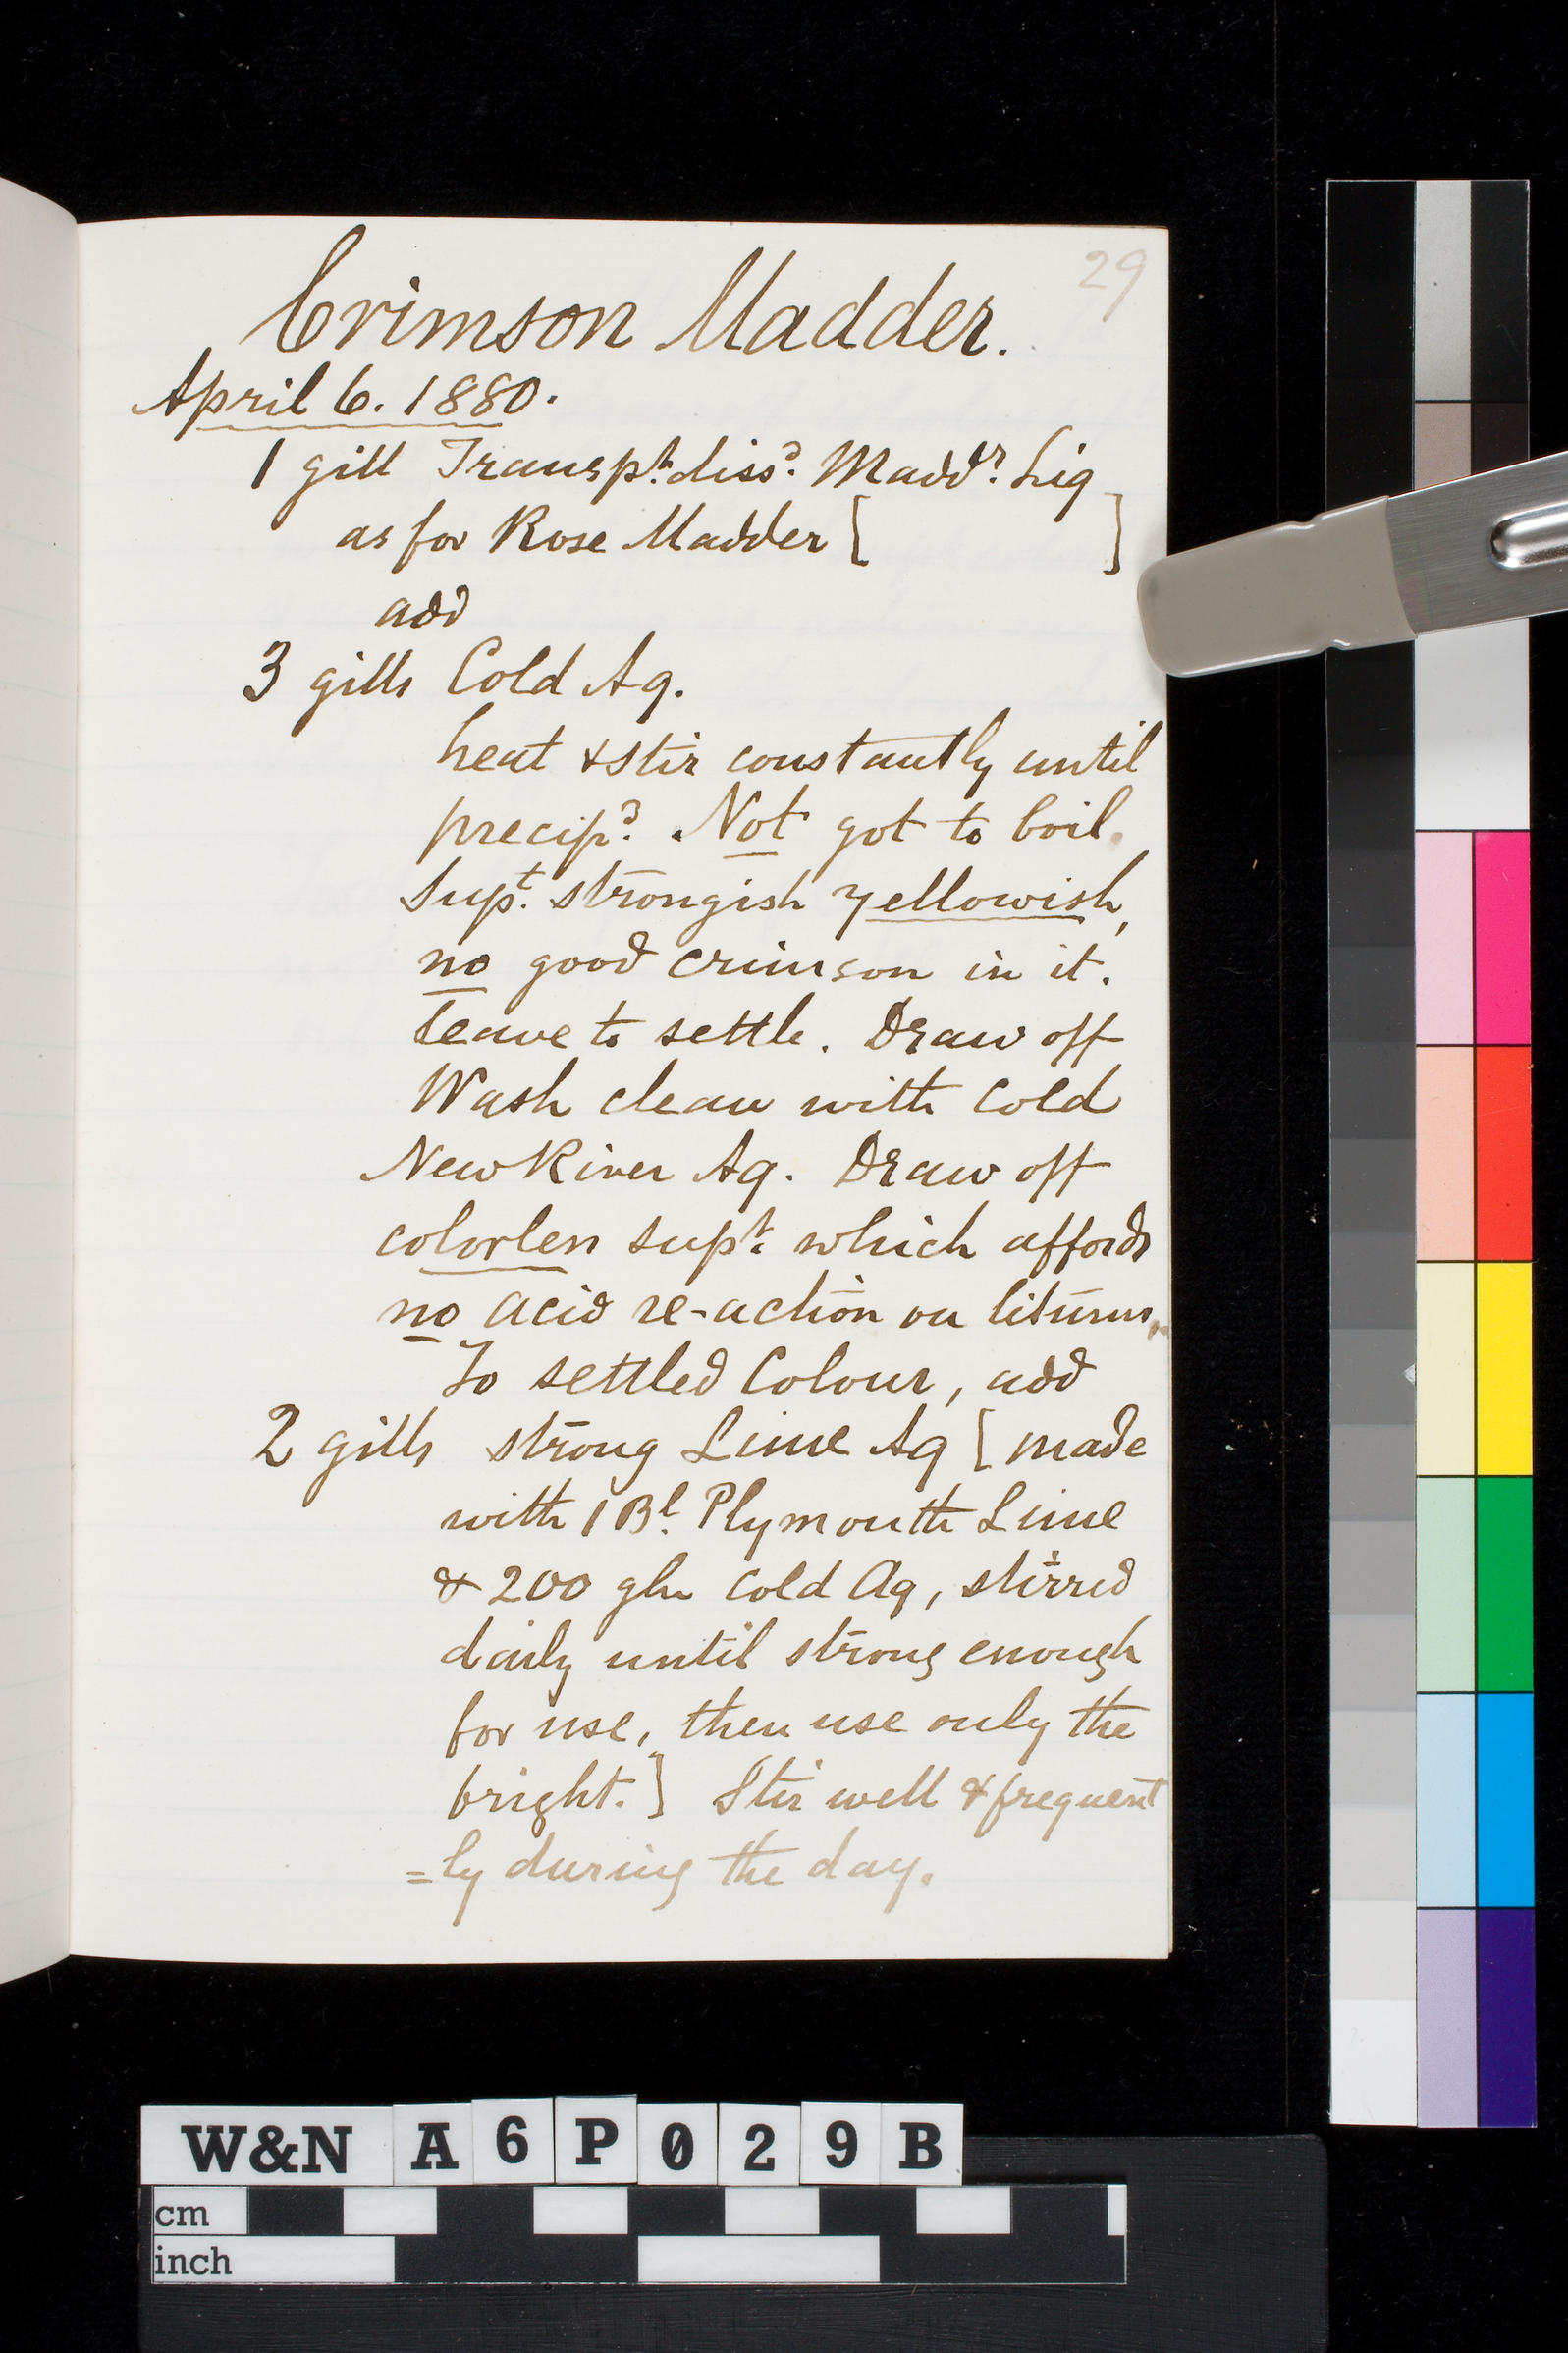 29
Crimson Madder.
April 6. 1880.
1 gill Transpt. dissd. Maddr. Liq
as for Rose Madder [ ]
add
3 gills Cold Aq.
heat & stir constantly until
precipd. Not got to boil.
Supt. strongish yellowish,
no good crimson in it.
Leave to settle. Draw off
Wash clean with cold
New River Aq. Draw off
colorless supt. which affords
no acid re-action on litmus.
To settled Colour, add
2 gills strong Lime Aq [made
with 1 Bl. Plymouth Lime
& 200 gls cold Aq, stirred
daily until strong enough
for use, then use only the
bright.] Stir well & frequent
=ly during the day.
W&N A6P029B
cm
inch